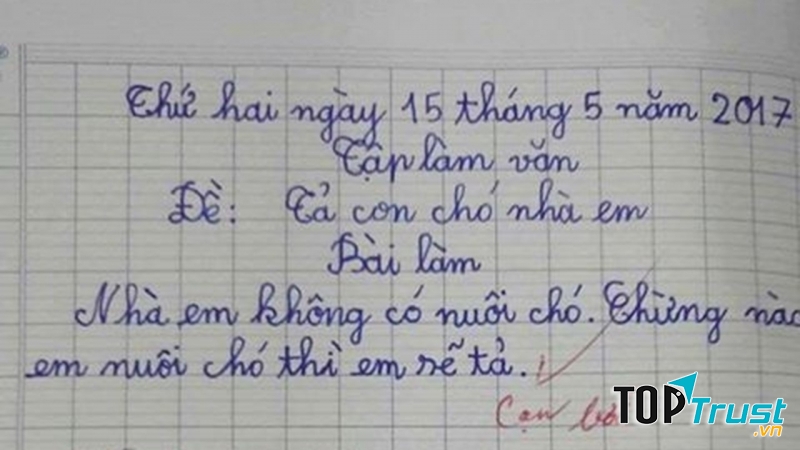 Thứ hai ngày 15 tháng 5 năm 2017
Tập làm văn
Đề: Tả con chó nhà em
Bài làm
Nhà em không có nuôi chó. Chừng nào
em nuôi chó thì em sẽ tả.
Cạn
TOPTrust.vn